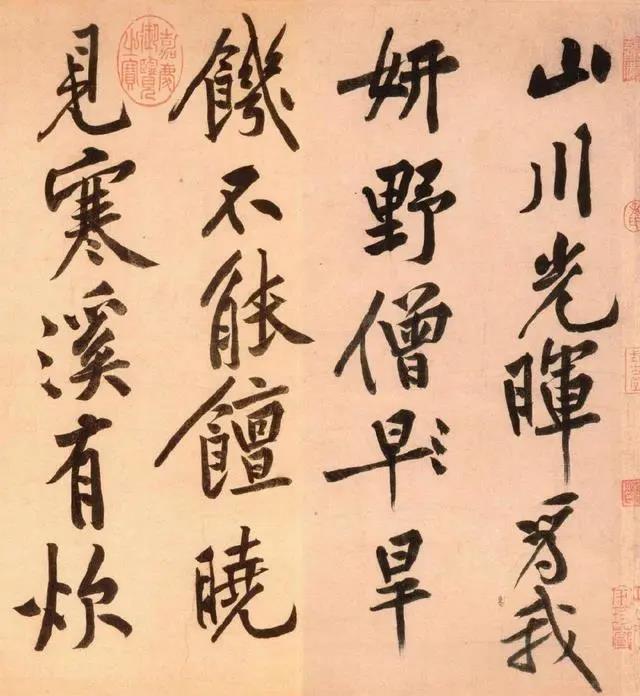 山川光暉為我
妍野僧早旱
饑不能饘曉
見寒溪有炊
嘉慶御覽之寶